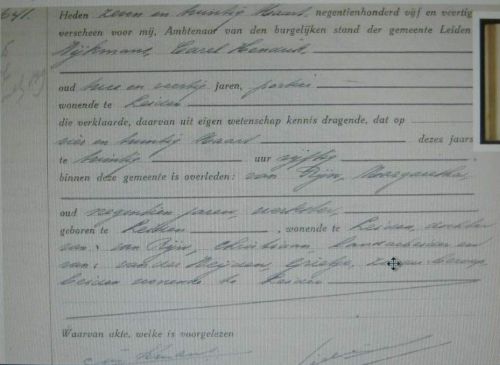 641.
Heden zeven en twintig Maart, negentienhonderd vijf en veertig
verscheen voor mij, Ambtenaar van den burgelijken stand der gemeente Leiden
Dijkmans, Carel Hendrik
oud twee en veertig jaren, portier
wonende te Leiden
die verklaarde, daarvan uit eigen wetenschap kennis dragende, dat op
vier en twintig Maart dezes jaars
te twintig uur vijftig
binnen deze gemeente is overleden: van Rijn, Margaretha,
oud negentien jaren, werkster,
geboren te , wonende te Leiden, dochter
van: van Rijn, Christiaan, landarbeider en
van: van der Meijden, Grietje, zonder beroep,
beiden wonende te Leiden
Waarvan akte, welke is voorgelezen